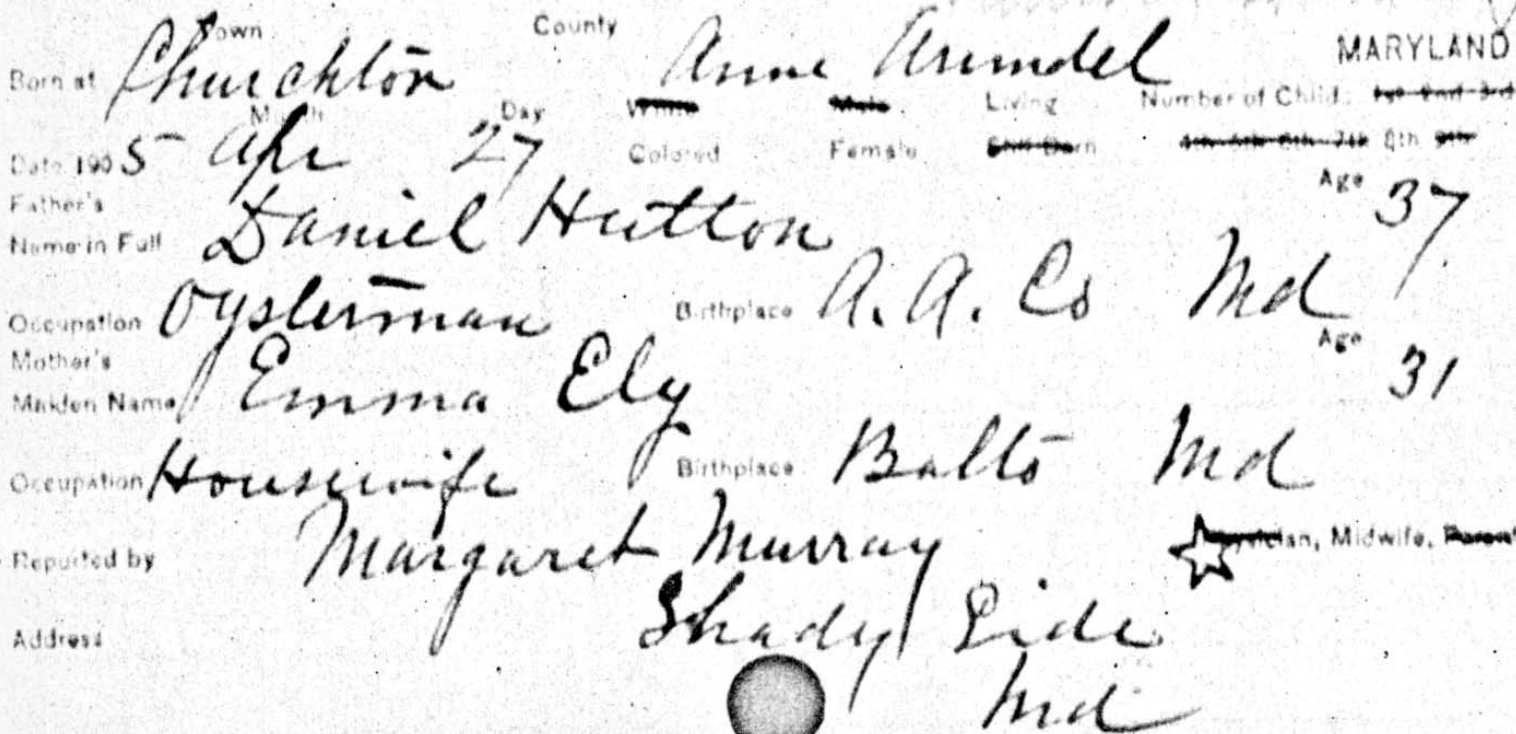 Town County MARYLAND
Born at Churchton Anne Arundel
Month Day White Male Living Number of Child: 1st 2nd 3rd
Date 1905 Apr 27 Colored Female Still Born 4th 5th 6th 7th 8th 9th
Father's Age 37
Name in Full Daniel Hutton
Occupation Oysterman Birthplace A. A. Co Md
Mother's Age 31
Maiden Name Emma Ely
Occupation Housewife Birthplace Balto Md
Reported by Margaret Murray Physician, Midwife, Parent
Address Shady Side
Md